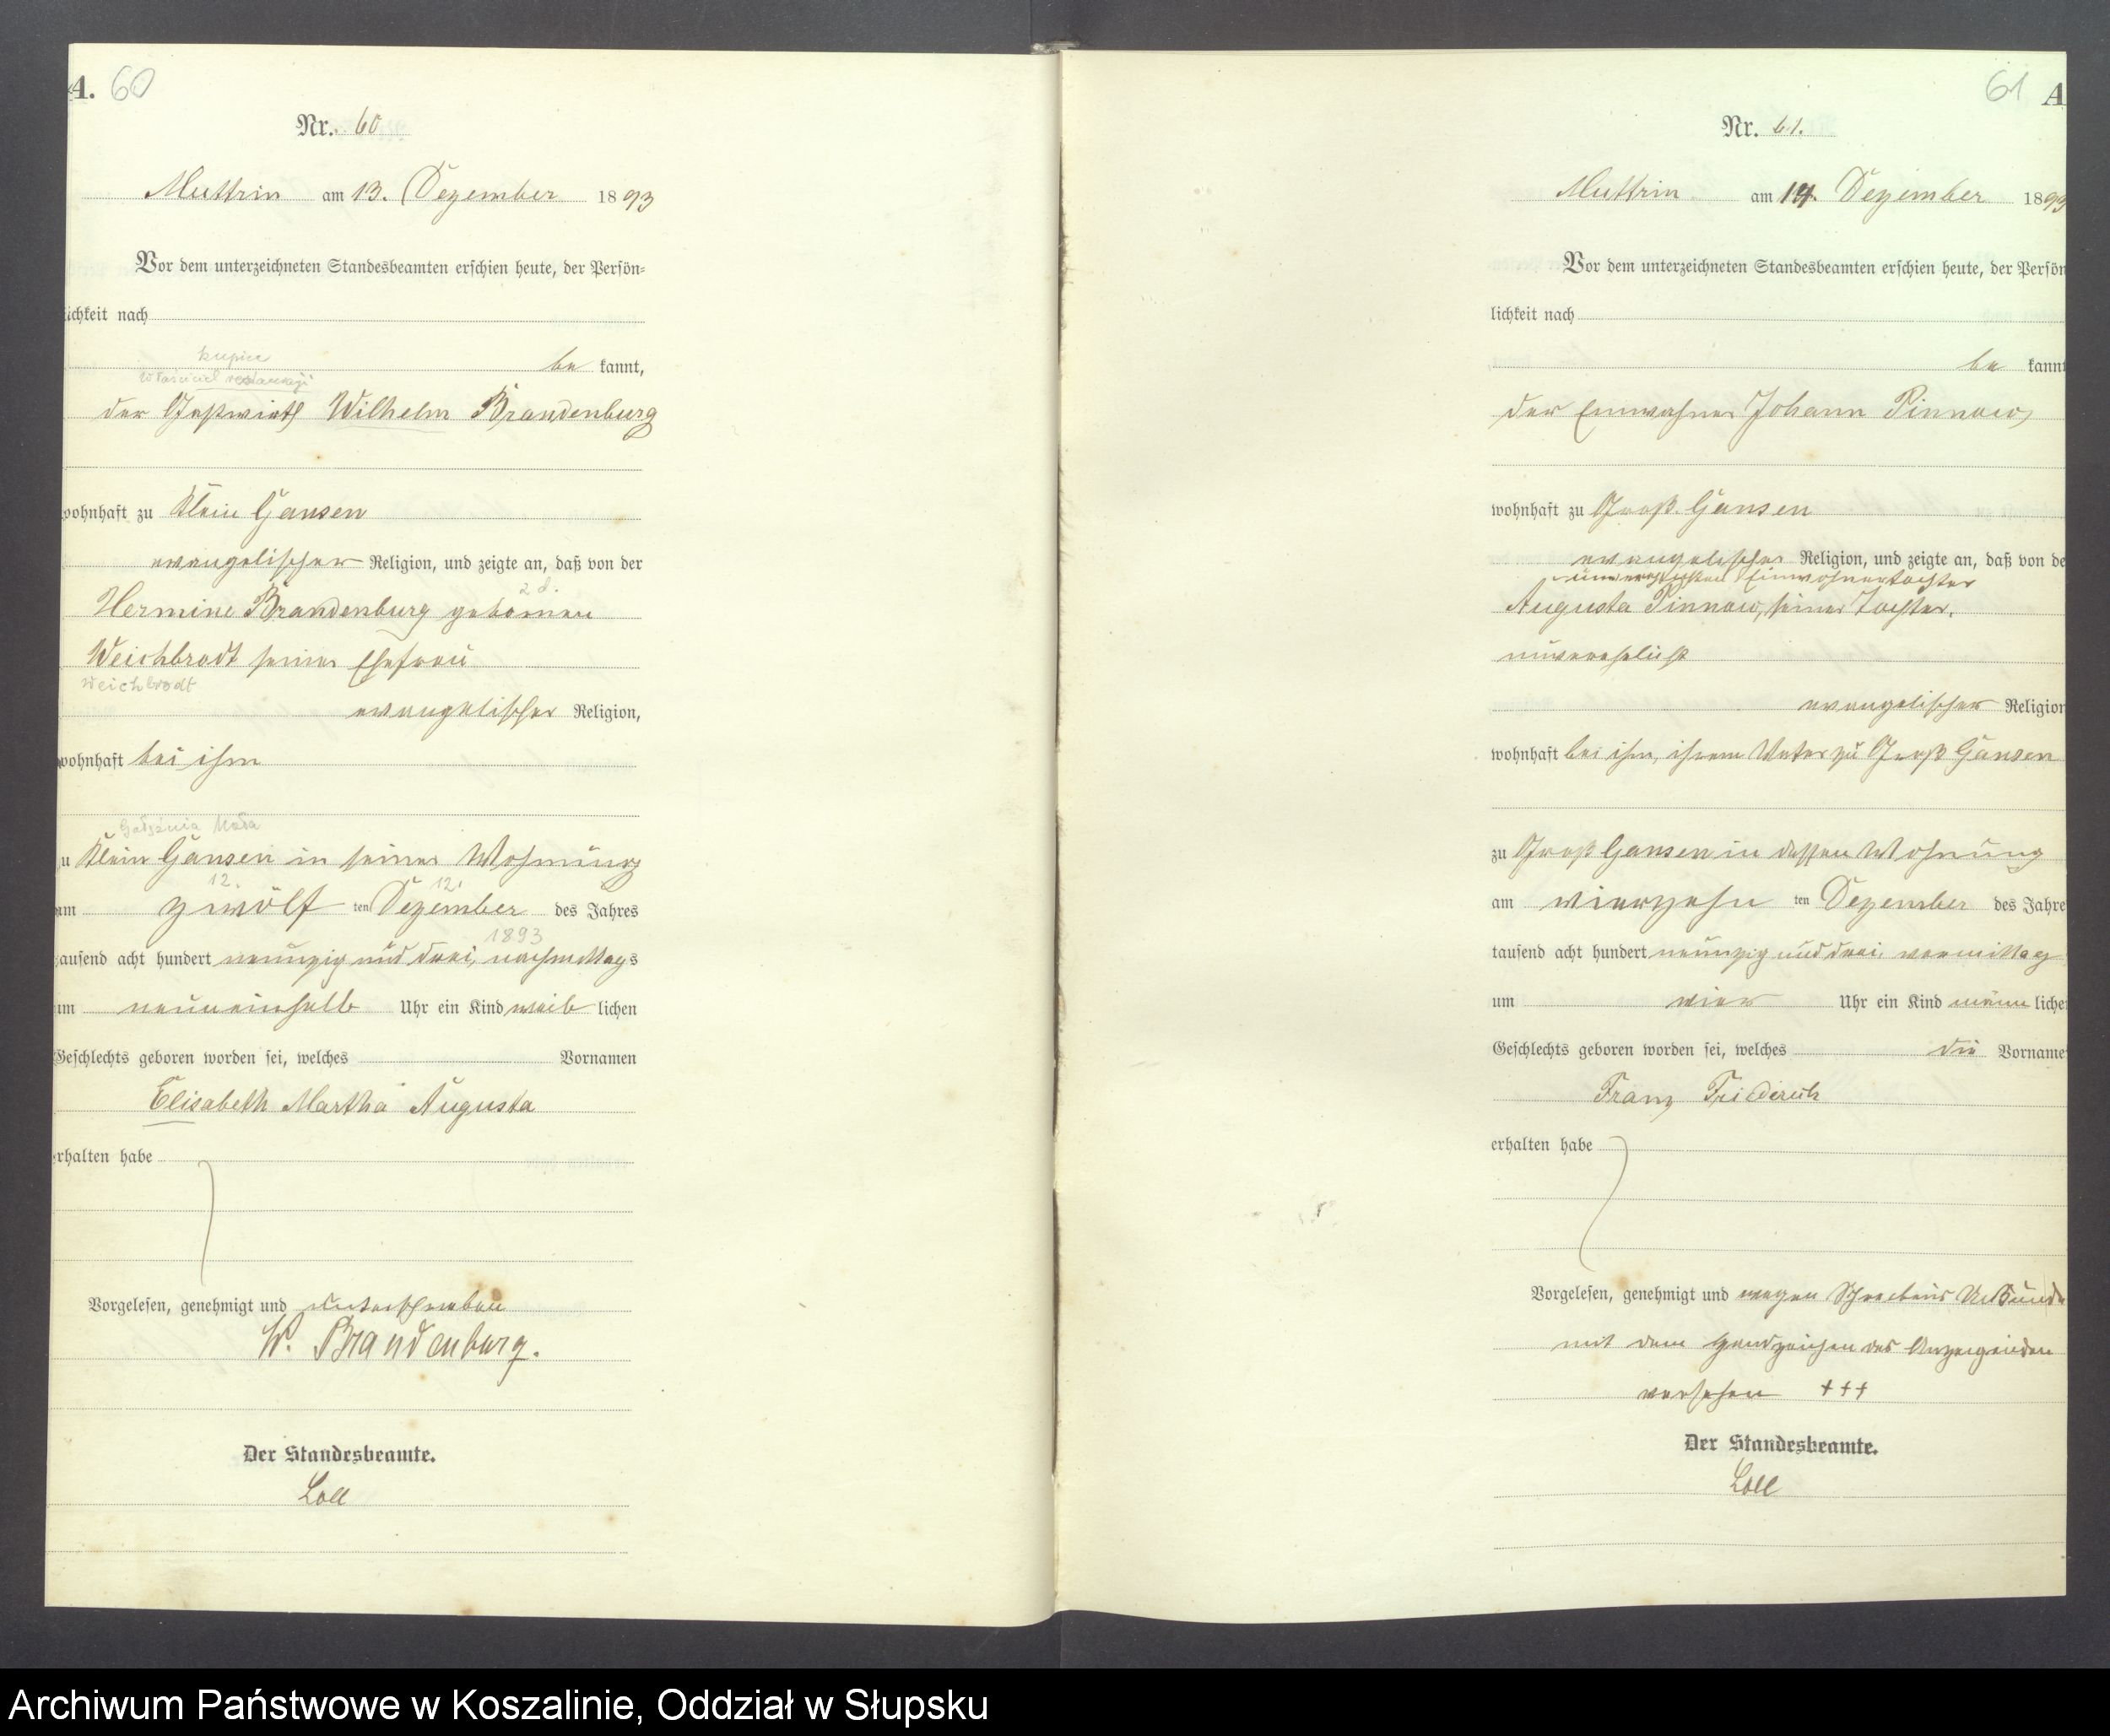 A. 60
Nr. 60
Muttrin am 13. Dezember 1893
Vor dem unterzeichneten Standesbeamten erschien heute, der Persön=
lichkeit nach
kupiec
be kannt,
właściciel restauracji
der Gastwirth Wilhelm Brandenburg
wohnhaft zu Klein Gansen
evangelischer Religion, und zeigte an, daß von der
z d.
Hermine Brandenburg gebornen
Weichbrodt seiner Ehefrau
Weichbrodt
evangelischer Religion,
wohnhaft bei ihm
Gałąźnia Mała
zu Klein Gansen in seiner Wohnung
12. 12.
am zwölf ten Dezember des Jahres
1893
tausend acht hundert neunzig und drei, nachmittags
um neuneinhalb Uhr ein Kind weib lichen
Geschlechts geboren worden sei, welches Vornamen
Elisabeth Martha Augusta
erhalten habe
Vorgelesen, genehmigt und unterschrieben
W. Brandenburg.
Der Standesbeamte.
Loll
61 A
Nr. 61.
Muttrin am 14. Dezember 1893
Vor dem unterzeichneten Standesbeamten erschien heute, der Persön
lichkeit nach
be kannt
der Einwohner Johann Pinnow,
wohnhaft zu Groß Gansen
evangelischer Religion, und zeigte an, daß von de
unverehelichten Einwohnertochter
Augusta Pinnow, seiner Tochter,
unverehelicht
evangelischer Religion
wohnhaft bei ihm, ihrem Vater zu Groß Gansen
zu Groß Gansen in dessen Wohnung
am vierzehn ten Dezember des Jahre
tausend acht hundert neunzig und drei, vormittag
um vier Uhr ein Kind männ liche
Geschlechts geboren worden sei, welches die Vorname
Franz Friederich
erhalten habe
Vorgelesen, genehmigt und wegen Schreibens Unkunde
mit dem Handzeichen des Anzeigenden
versehen +++
Der Standesbeamte.
Loll
Archiwum Państwowe w Koszalinie, Oddział w Słupsku